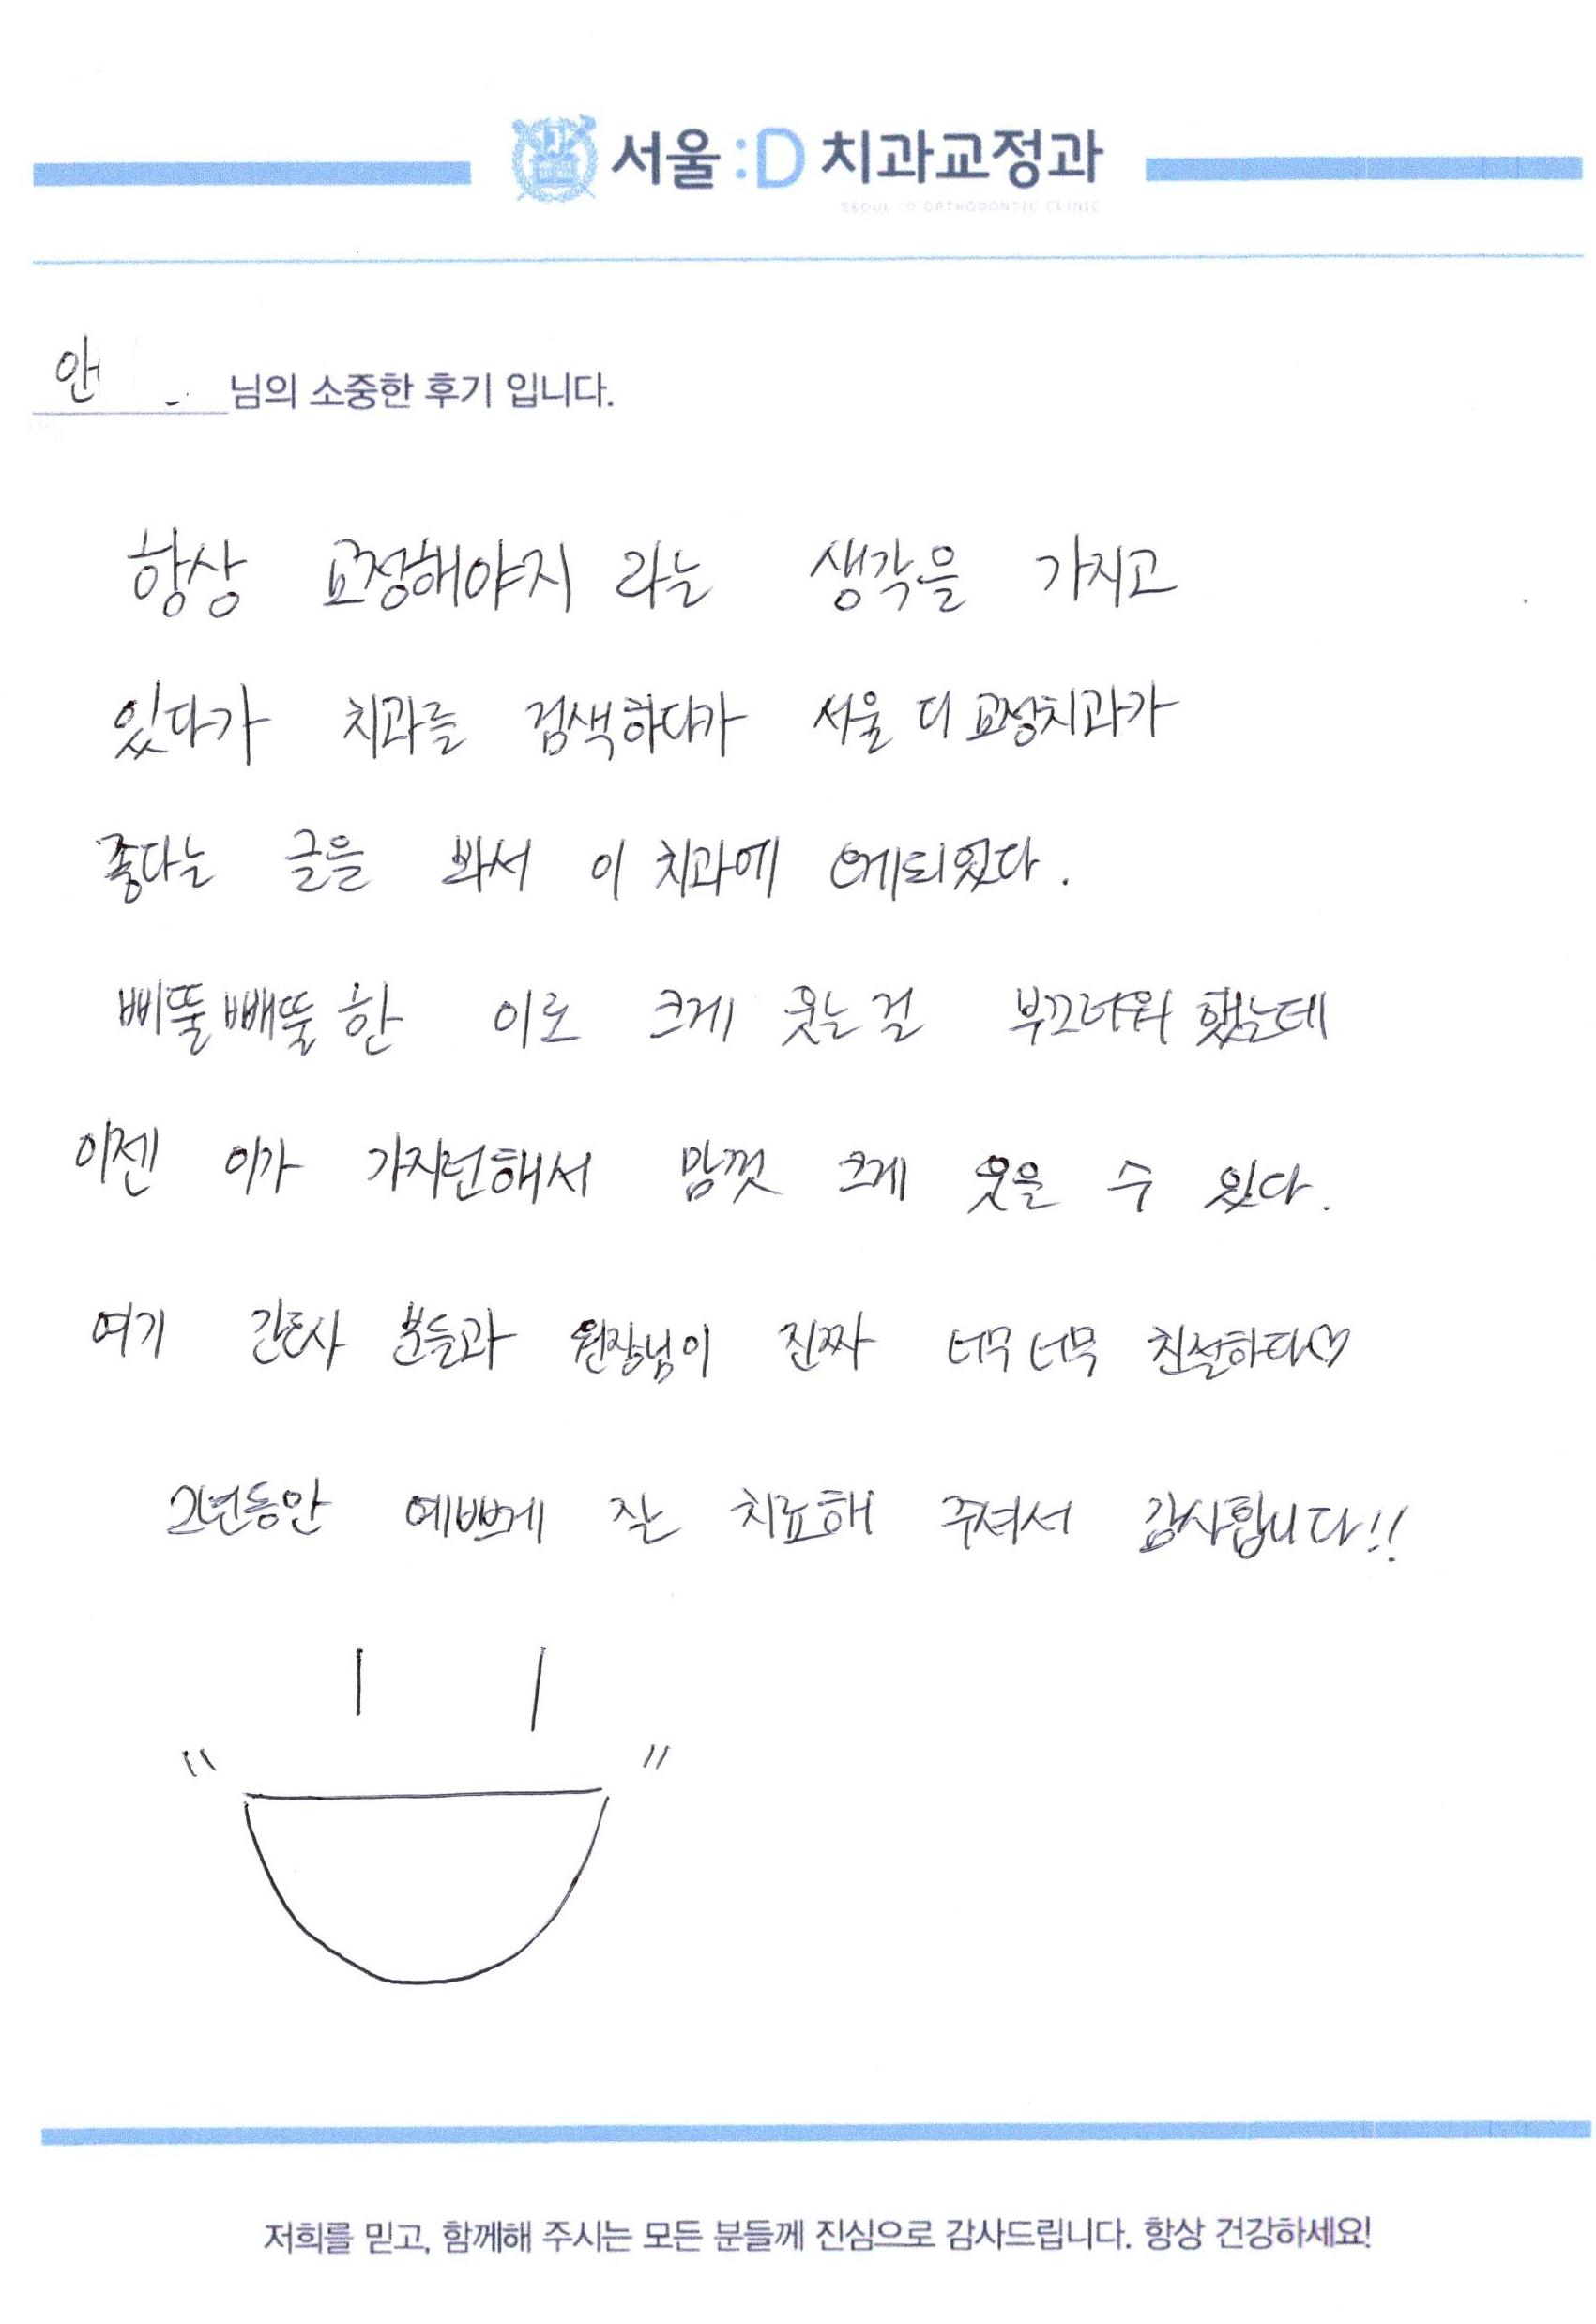 서울:D 치과교정과
SEOUL :D ORTHODONTIC CLINIC
안
님의 소중한 후기 입니다.
항상 교정해야지 라는 생각을 가지고
있다가 치과를 검색하다가 서울 디 교정치과가
좋다는 글을 봐서 이 치과에 오게되었다.
삐뚤빼뚤 한 이로 크게 웃는 걸 부끄러워 했는데
이젠 이가 가지런해서 맘껏 크게 웃을 수 있다.
여기 간호사 분들과 원장님이 진짜 너무 너무 친절하다♡
2년동안 예쁘게 잘 치료해 주셔서 감사합니다!!
저희를 믿고, 함께해 주시는 모든 분들께 진심으로 감사드립니다. 항상 건강하세요!